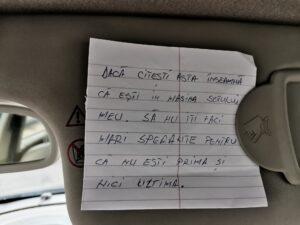 DACĂ CITEȘTI ASTA ÎNSEAMNĂ
CĂ EȘTI ÎN MAȘINA SOȚULUI
MEU. SĂ NU ÎȚI FACI
MARI SPERANȚE PENTRU
CĂ NU EȘTI PRIMA ȘI
NICI ULTIMA.